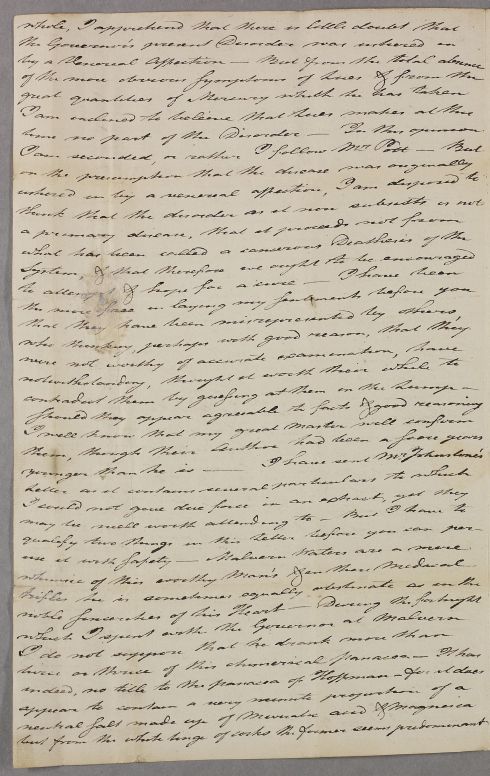 whole, I apprehend that there is little doubt that
the Governor's present Disorder was ushered in
by a Venereal Affection — But from the total absence
of the more obvious Symptoms of Lues & from the
great quantities of Mercury which he has taken
I am inclined to believe that Lues makes at this
time no part of the Disorder — In this opinion
I am seconded, or rather I follow Mr. Pott — But
on the presumption that the disease was originally
ushered in by a venereal affection, I am disposed to
think that the disorder as it now subsists is not
a primary disease, that it proceeds not from
what has been called a cancerous Deathesis of the
System, & that therefore we ought to be encouraged
to attempt & hope for a cure — I have been
the more free in laying my sentiments before you
that they have been misrepresented by others,
who thinking, perhaps with good reason, that they
were not worthy of accurate examination, have
notwithstanding, thought it worth their while to
contradict them by guessing at them in the Lump —
Should they appear agreeable to facts & good reasoning
I well know that my great Master will confirm
them, though their Author had been a score years
younger than he is — I have sent Mr Johnstone's
Letter as it contains several particulars to which
I could not give due force in an extract, yet they
may be well worth attending to — But I have to
qualify two things in this Letter before you can per-
use it with safety — Malvern Waters are a mere
whimsie of this worthy Man's & in these Medical
trifles he is sometimes equally obstinate as in the
noble sincerities of his Heart — During the fortnight
which I spent with the Governor at Malvern
I do not suppose that he drank more than
twice or thrice of this chimerical panacea — It has
indeed, no title to the panacea of Hoffman — for it does
appear to contain a very minute proportion of a
neutral Salt made up of Muriatic acid & Magnesia
but from the white tinge of rocks the former seems predominant